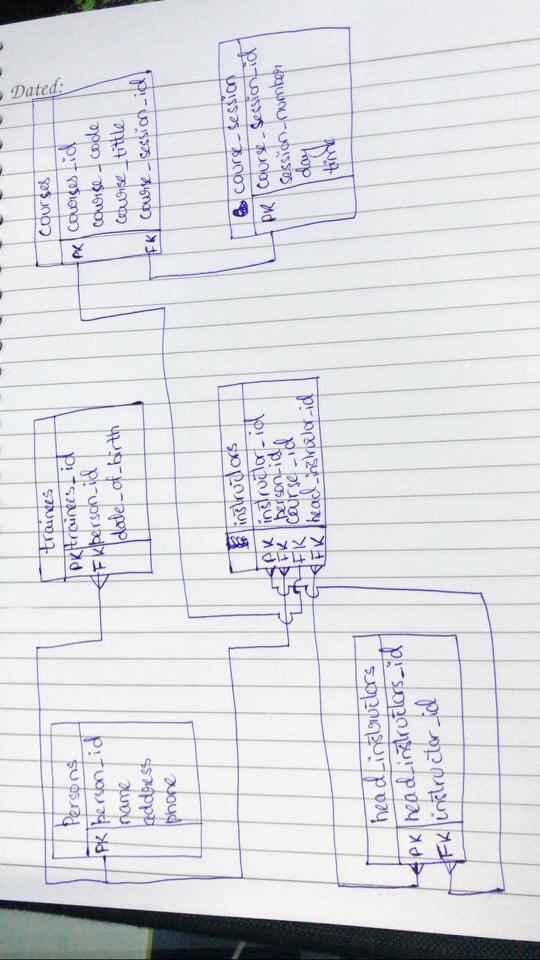 Dated:
Persons
PK person_id
name
address
phone
trainees
PK trainees_id
FK person_id
date_of_birth
courses
PK courses_id
course_code
course_tittle
FK course_session_id
instructors
PK instructor_id
FK person_id
FK course_id
FK head_instructor_id
course_session
PK course_session_id
session_number
day
time
head_instructors
PK head_instructors_id
FK instructor_id